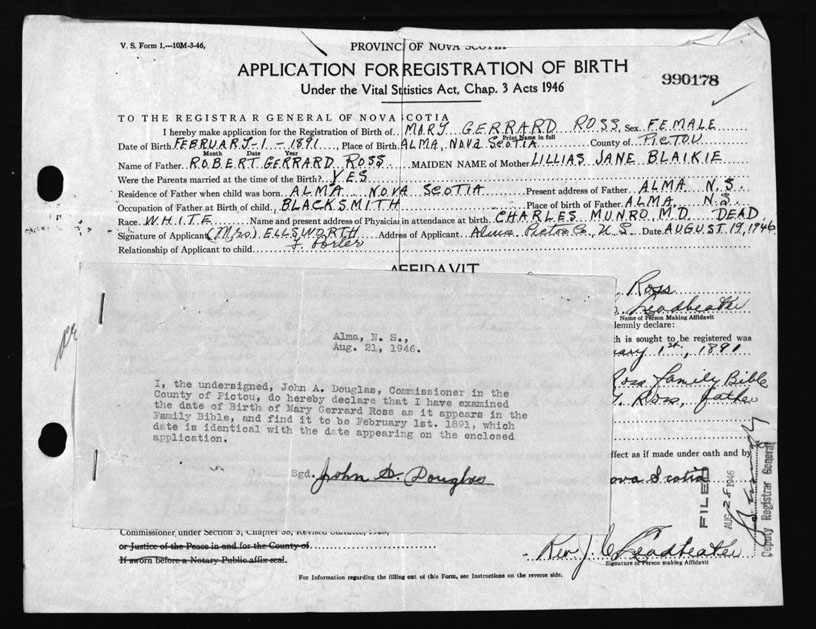 V. S. Form 1.—10M-3-46.
PROVINC OF NOVA SCOTIA
APPLICATION FOR REGISTRATION OF BIRTH
Under the Vital Statistics Act, Chap. 3 Acts 1946
990178
TO THE REGISTRAR GENERAL OF NOVA SCOTIA
I hereby make application for the Registration of Birth of MARY GERRARD ROSS Sex FEMALE
Print Name in full
Date of Birth FEBRUARY-1-1891 Place of Birth ALMA, NOVA SCOTIA County of PICTOU
Month Date Year
Name of Father ROBERT GERRARD ROSS MAIDEN NAME of Mother LILLIAS JANE BLAIKIE
Were the Parents married at the time of the Birth? YES
Residence of Father when child was born ALMA NOVA SCOTIA Present address of Father ALMA N.S.
Occupation of Father at Birth of child, BLACKSMITH Place of birth of Father ALMA, N.S.
Race WHITE Name and present address of Physician in attendance at birth. CHARLES MUNRO, M.D. DEAD
Signature of Applicant (Mrs) ELLSWORTH Address of Applicant. Alma Pictou Co., N.S. Date AUGUST 19, 1946
Relationship of Applicant to child
AFFIDAVIT
Ross
Leadbeater
Name of Person Making Affidavit
lemnly declare:
th is sought to be registered was
ary 1st, 1891
Ross family Bible
Ross, father
ffect as if made under oath and by
ova Scotia
FILED
AUG 28 1946
Deputy Registrar General
Alma, N. S.,
Aug. 21, 1946.
I, the undersigned, John A. Douglas, Commissioner in the
County of Pictou, do hereby declare that I have examined
the date of Birth of Mary Gerrard Ross as it appears in the
Family Bible, and find it to be February 1st. 1891, which
date is identical with the date appearing on the enclosed
application.
Sgd. John A. Douglas
Commissioner, under Section 3, Chapter 38, Revised Statutes, 1923,
or Justice of the Peace in and for the County of
If sworn before a Notary Public affix seal.
Rev J. C. Leadbeater
Signature of Person making Affidavit
For Information regarding the filling out of this Form, see Instructions on the reverse side.